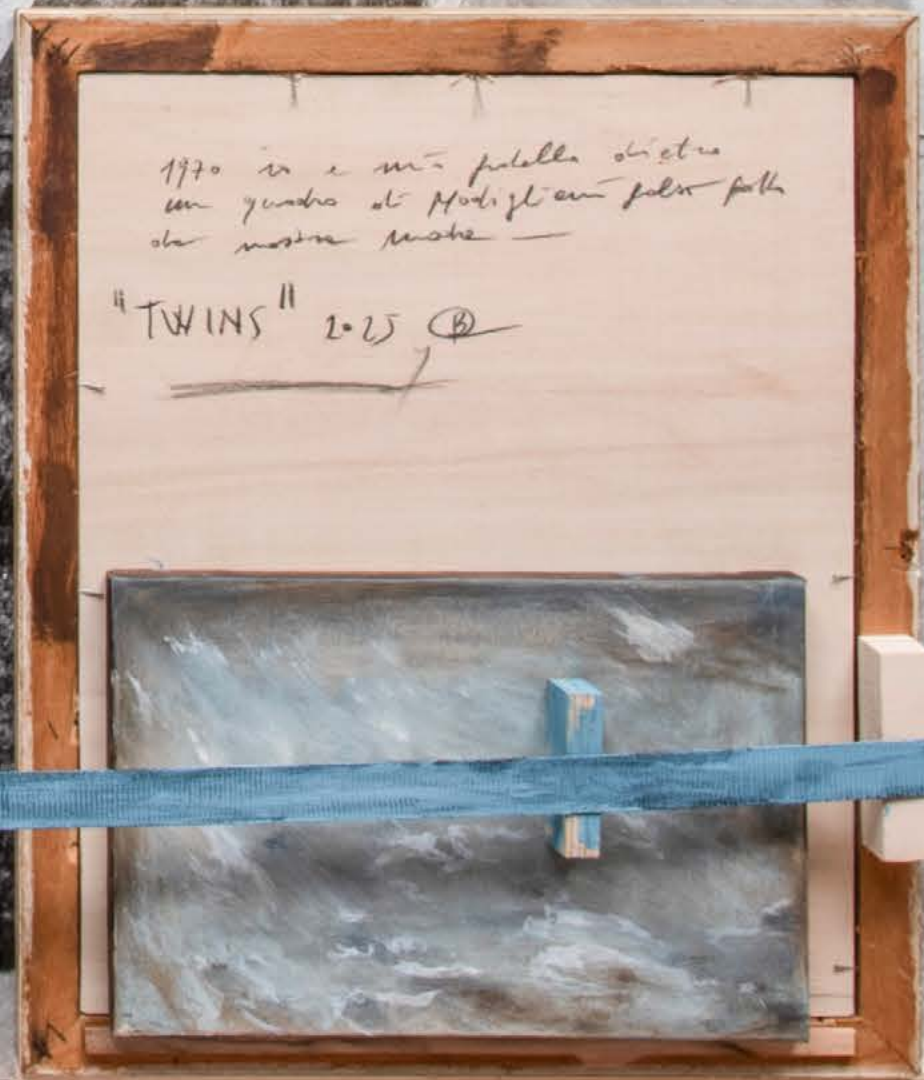 1970 io e mio fratello dietro
un quadro di Modigliani falso fatto
da nostra madre —
"TWINS" 2025 B